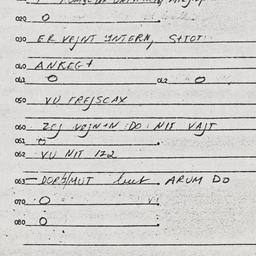 020 O
030 ER VEJNT INTERN, S+TOT
040 ANKEG+
041 O 042 O
050 VU FREJSCAX
060 ZEJ VEJN+N DO NIT VAJT
061 O
062 VU NIT 172
063 DORT/MUT ARUM DO
070 O
080 O